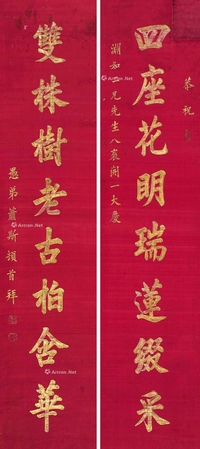 恭祝
四座花明瑞蓮綴采
淵如二兄先生八裘開一大慶
雙株樹老古柏含華
愚弟蕭斯頓首拜